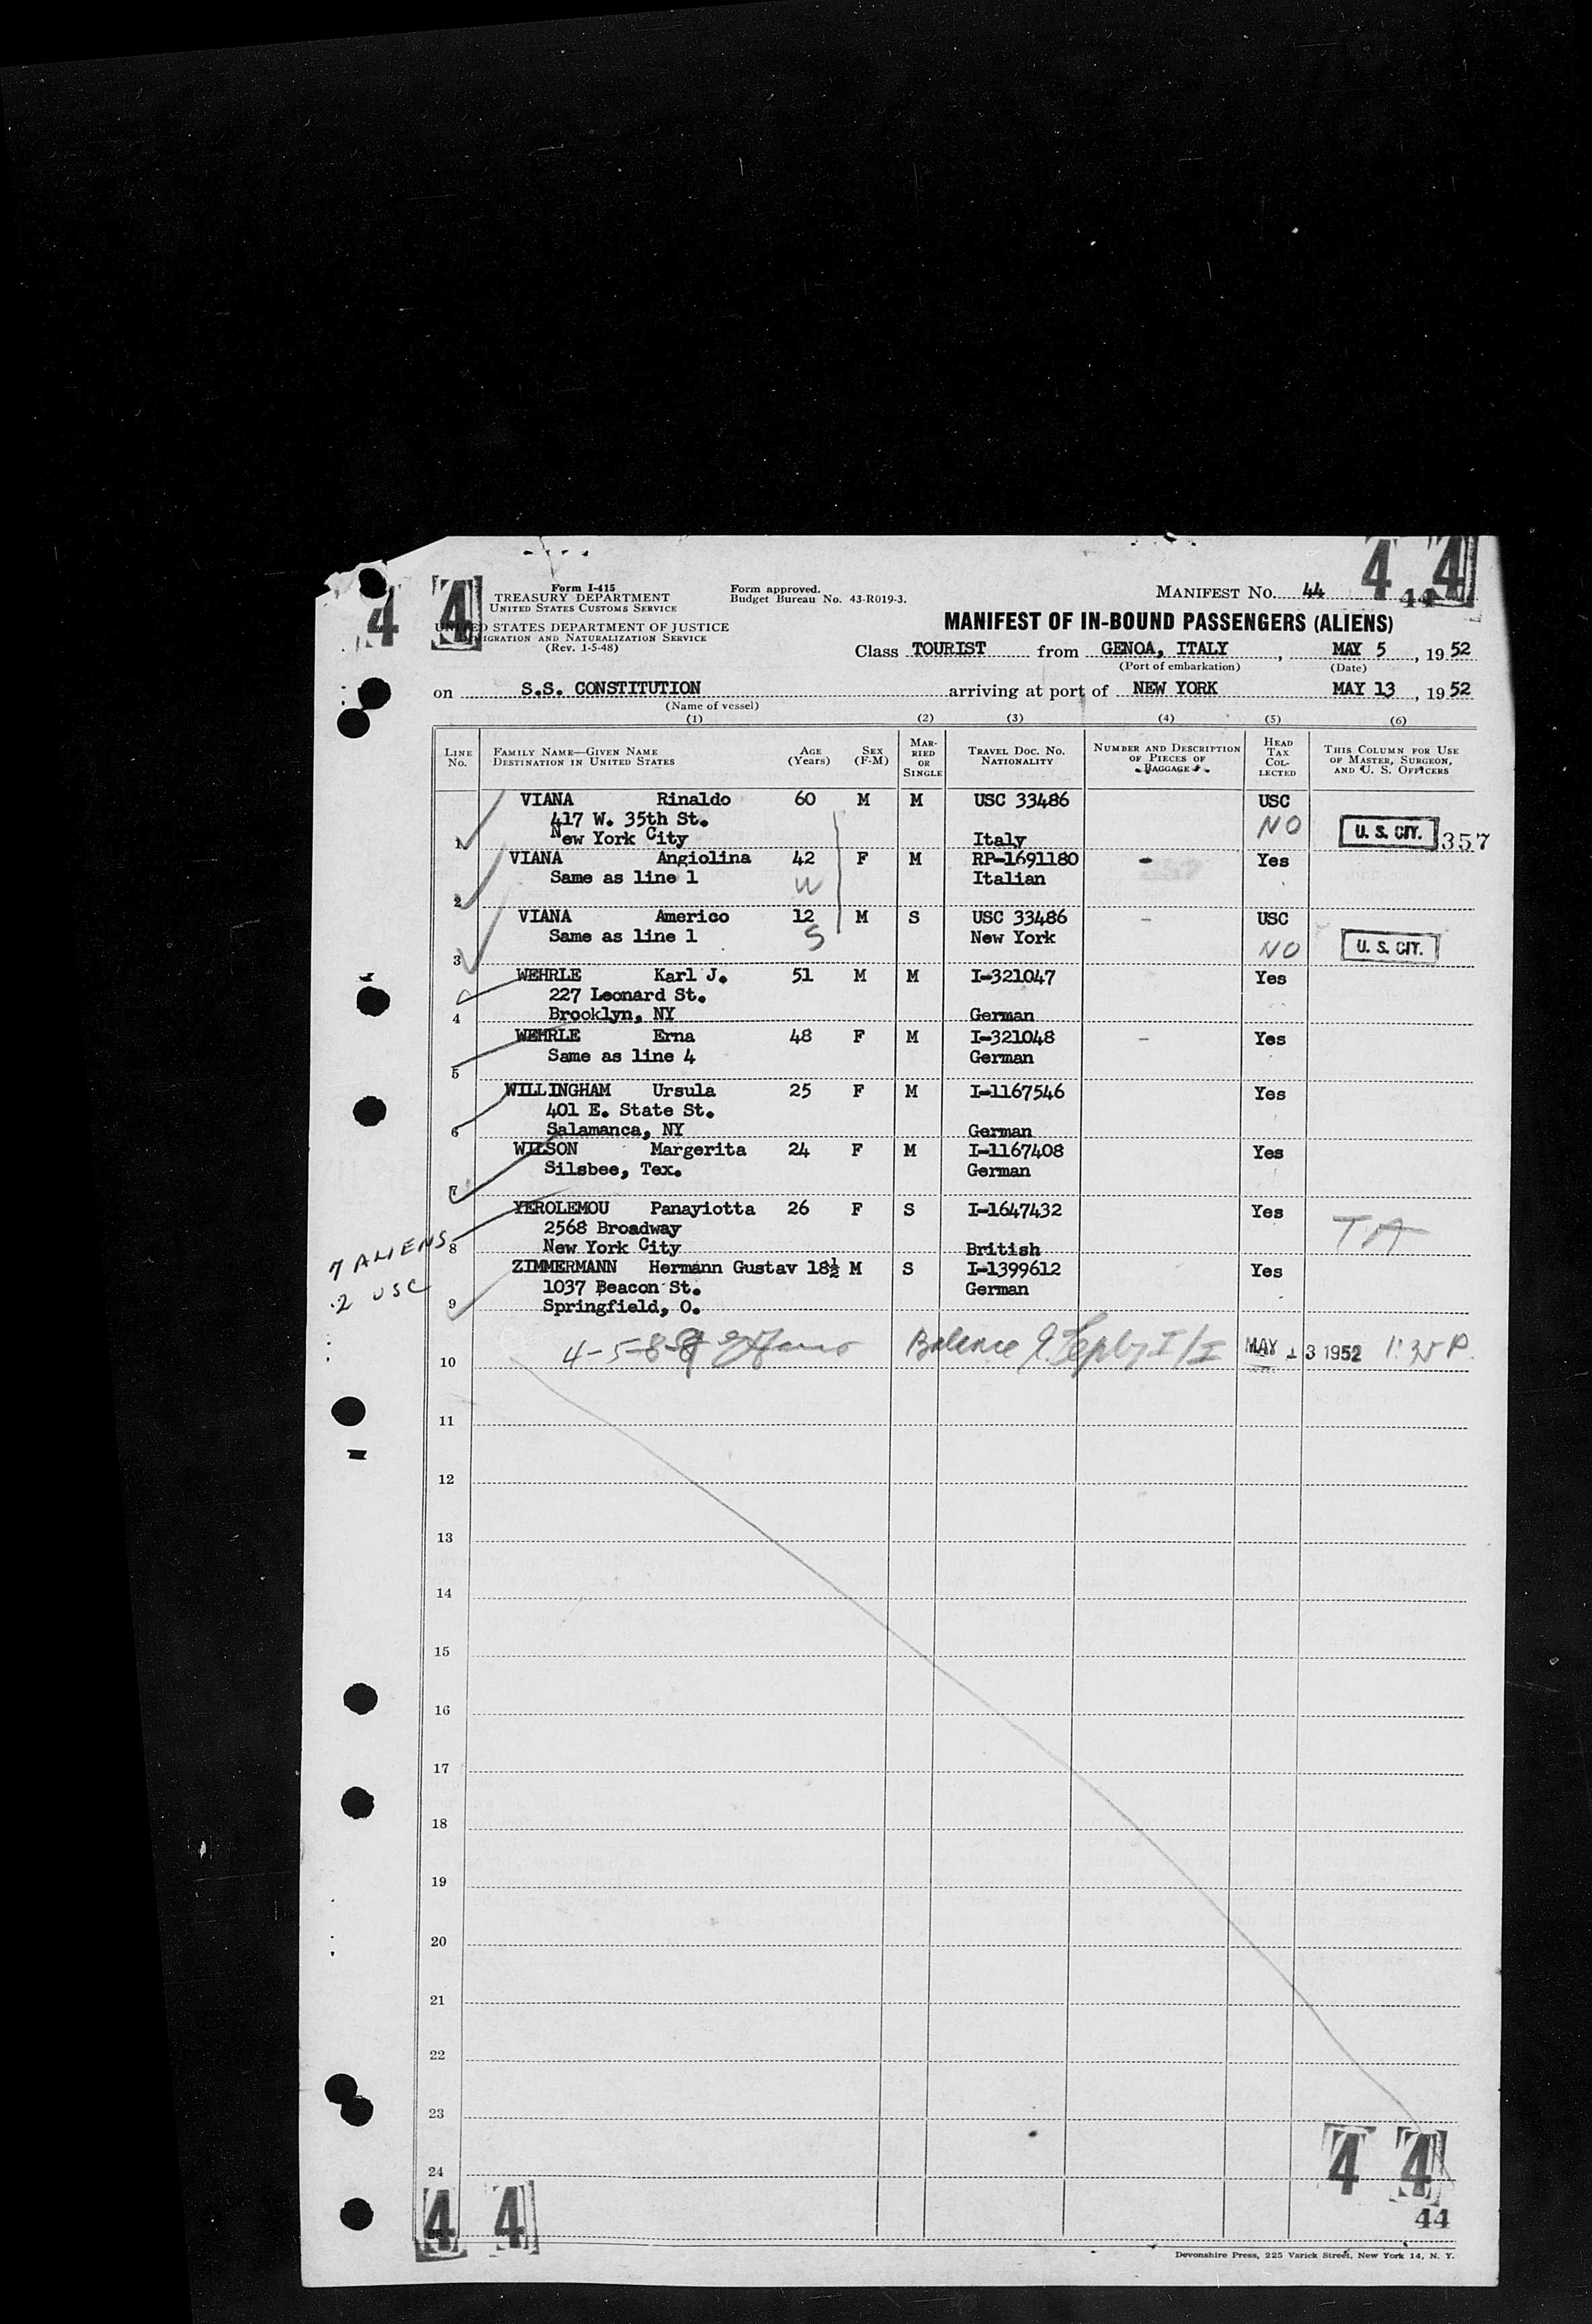 4 4
Form I-415
TREASURY DEPARTMENT
UNITED STATES CUSTOMS SERVICE
UNITED STATES DEPARTMENT OF JUSTICE
IMMIGRATION AND NATURALIZATION SERVICE
(Rev. 1-5-48)
Form approved.
Budget Bureau No. 43-R019-3.
MANIFEST NO. 44
4 4
44
MANIFEST OF IN-BOUND PASSENGERS (ALIENS)
Class TOURIST from GENOA, ITALY, MAY 5, 1952
(Port of embarkation) (Date)
on S.S. CONSTITUTION arriving at port of NEW YORK MAY 13, 1952
(Name of vessel)
(1) (2) (3) (4) (5) (6)
LINE NO. FAMILY NAME—GIVEN NAME DESTINATION IN UNITED STATES AGE (Years) SEX (F-M) MARRIED OR SINGLE TRAVEL DOC. NO. NATIONALITY NUMBER AND DESCRIPTION OF PIECES OF BAGGAGE HEAD TAX COLLECTED THIS COLUMN FOR USE OF MASTER, SURGEON, AND U. S. OFFICERS
VIANA Rinaldo 60 M M USC 33486 USC
417 W. 35th St. NO U. S. CIT. 357
1 New York City Italy
VIANA Angiolina 42 F M RP-1691180 - Yes
Same as line 1 W Italian
2
VIANA Americo 12 M S USC 33486 - USC
Same as line 1 S New York NO U. S. CIT.
3
WEHRLE Karl J. 51 M M I-321047 Yes
227 Leonard St.
4 Brooklyn, NY German
WEHRLE Erna 48 F M I-321048 - Yes
Same as line 4 German
5
WILLINGHAM Ursula 25 F M I-1167546 Yes
401 E. State St.
6 Salamanca, NY German
WILSON Margerita 24 F M I-1167408 Yes
Silsbee, Tex. German
7
YEROLEMOU Panayiotta 26 F S I-1647432 Yes
2568 Broadway TA
8 New York City British
7 ALIENS
2 USC
ZIMMERMANN Hermann Gustav 18½ M S I-1399612 Yes
1037 Beacon St. German
9 Springfield, O.
10 4-5-8- Balance I/I MAY 13 1952 1:35 P.
11
12
13
14
15
16
17
18
19
20
21
22
23
24
4 4
44
4 4
Devonshire Press, 225 Varick Street, New York 14, N. Y.